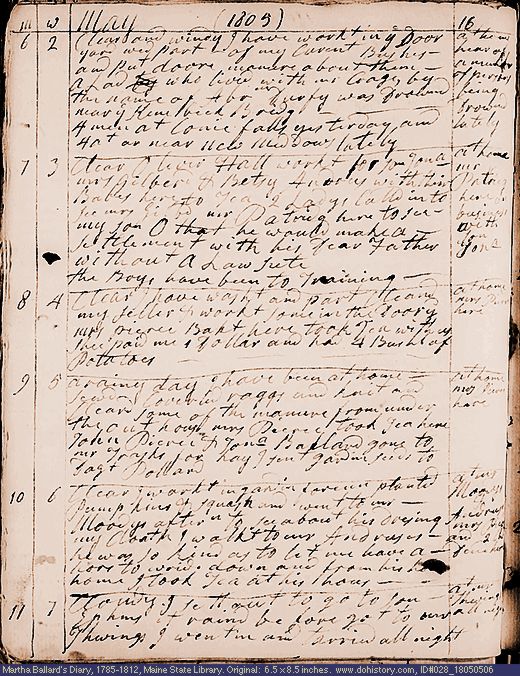 m w May (1805) 16
6 2 Clear and windy I have workt in y Door
yard wed part of my Curent Bushes
and put doore manure about them
a Lad who live with mr Crage by
the name of was Drownd
near Kenebeck Bridg
4 men at Conie falls yesterday and
40 at or near New Meddows lately
at home
hear of
a number
of persons
being
Drownd
lately
7 3 Clear Elixer Hall workt for Jona
mrs Gilbert & Betsy Andros with their
Babes here to Tea 2 Ladys Calld in to
see mrs mr Patrig here to see
my son O that he would make a
settlement with his Dear Father
without a Law Sute
the Boys have been to Training
at home
mr
Patrig
here on
business
with
Jona
8 4 Clear I have washt and part Cleand
my Celler & workt some in the Doory
mrs Pierce & Bapt here took Tea with us
shee paid me 1 Dollar and had 4 Bush of
Potatoes
at home
mrs Pierce
here
9 5 a rainy day I have been at home
Coverd raggs and knit and
Clear some of the manure from under
the out house mrs Pierce took Tea here
John Pierce & Jona Ballard gone to
mr for hay I sent gardin seeds to
Dagt Pollard
at home
mrs Pierce
here
10 6 Clear I workt in gardin forenn planted
Pumpkins & squash and went to mr
Moodys aftern to see about his dresing
my Cloath I walkt to mr Andruses
he was so kind as to let me have a
hors to wride down and from his
home I took Tea at his hous
at mr
Moodys
&
Andrus
mrs
and 2
11 7 Cloudy I sett out to go to son
Ephms it raind before I got to our
Thwings I went in and all night
at mr
Thwings
all night
Martha Ballard's Diary, 1785-1812, Maine State Library. Original: 6.5 x 8.5 inches. www.dohistory.com, ID#028_18050506